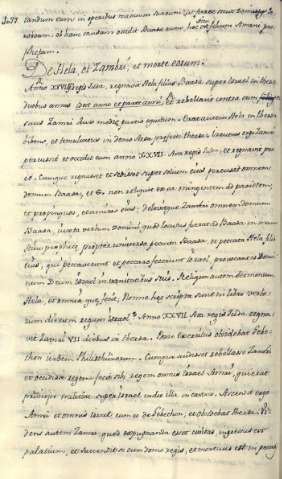 eundum eum in operibus manuum suarum ut fieret sicut domus
Jeroboam. ob hanc causam occidit hoc est filium Anani pro
phetam.
De Hela, et Zambri, et morte eorum.
Anno XXVI Regis Asa, regnavit Hela filius Baasa super Israel in Thersa
duobus annis et rebellavit contra eum
servus suus Zambri dux mediæ partis equitum. Erat autem Hela in Thersa
bibens, et temulentus in domo Arsa præfecti Thersa. Irruens ergo Zambri
percussit et occidit eum anno XXVII Asa regis Juda, et regnavit pro
eo. Cumque regnasset et sedisset super solium eius percussit omnem
domum Baasa, et non reliquit ex ea mingentem ad parietem,
et propinquos, et amicos eius, delevitque Zambri omnem domum
Baasa, iuxta verbum Domini quod locutus fuerat ad Baasa in manu
Jehu prophetæ, propter universa peccata Baasa, et peccata Hela filii
eius, qui peccaverunt et peccare fecerunt Israel, provocantes Domi
num Deum Israel in vanitatibus suis. Reliqua autem sermonum
Hela, et omnia quæ fecit, Nonne hæc scripta sunt in libro verbo
rum dierum regum Israel? Anno XXVII Asa regis Juda, regna
vit Zambri VII diebus in Thersa. Porro exercitus obsidebat Gebe
thon urbem Philisthinorum. Cumque audisset rebellasse Zambri
et occidisse regem, fecit sibi regem omnis Israel Amri, qui erat
princeps militiæ super Israel in die illa in castris. Ascendit ergo
Amri et omnis Israel cum eo de Gebethon, et obsidebat Thersa. Vi
dens autem Zambri quod expugnanda esset civitas, ingressus est
palatium, et succendit se cum domo regia, et mortuus est in peccatis